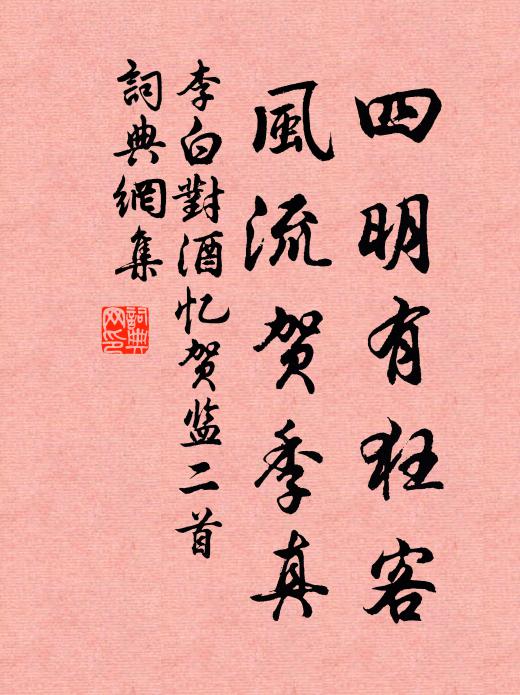 四明有狂客
風流贺季真
李白對酒忆贺监二首
詞典網集
詞典网印